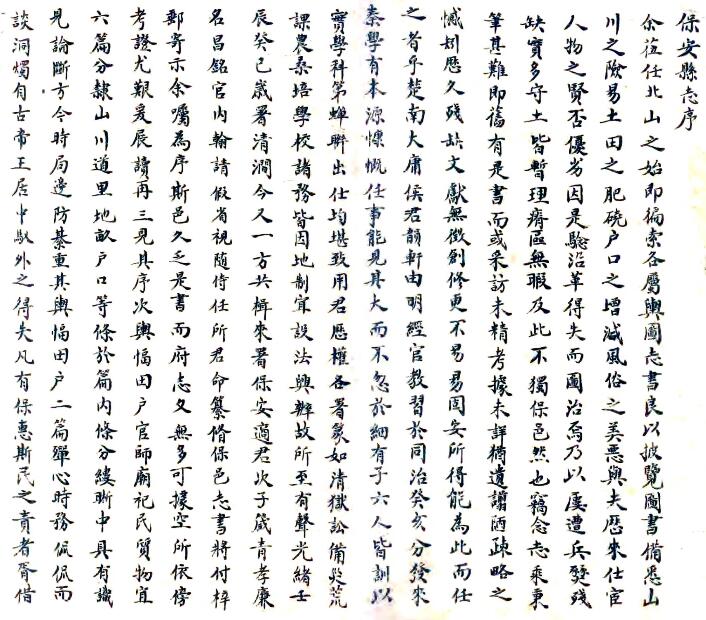 保安縣志序
余莅任北山之始即徧索各屬輿圖志書良以披覽圖書備悉山
川之險易土田之肥磽户口之增減風俗之美惡與夫歷來仕宦
人物之賢否優劣因是驗沿革得失而圖治焉乃以屢遭兵燹殘
缺實多守土皆暫理瘠區無暇及此不獨保邑然也竊念志乘秉
筆甚難即舊有是書而或采訪未精考據未詳猶遺譏陋疎略之
憾矧歷久殘缺文獻無徵創修更不易易固安所得能為此而任
之者乎楚南大庸侯君韻軒由明經官教習於同治癸亥分發來
秦學有本源慷慨任事能見其大而不忽於細有子六人皆訓以
實學科第蟬聯出仕均堪致用君歷權各署篆如清獄訟備災荒
課農桑培學校諸務皆因地制宜設法興辦故所至有聲光緒壬
辰癸巳歲署清澗今又一方共楫來署保安適君次子箴青孝廉
名昌銘官内翰請假省視随侍任所君命纂脩保邑志書將付梓
郵寄示余囑為序斯邑久乏是書而府志又無多可據空所依傍
考證尤艱爰展讀再三見其序次輿幅田户官師廟祀民質物宜
六篇分隸山川道里地畝户口等條於篇内條分縷晰中具有識
見論斷方今時局邊防綦重其輿幅田户二篇殫心時務侃侃而
談洞燭自古帝王居中馭外之得失凡有保惠斯民之責者胥借